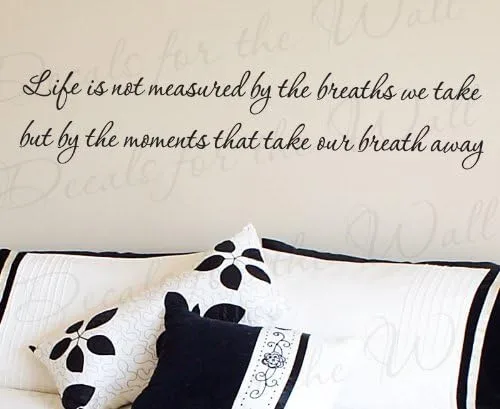 Life is not measured by the breaths we take
but by the moments that take our breath away
Decals for the Wall
Decals for the Wall
Decals for the Wall